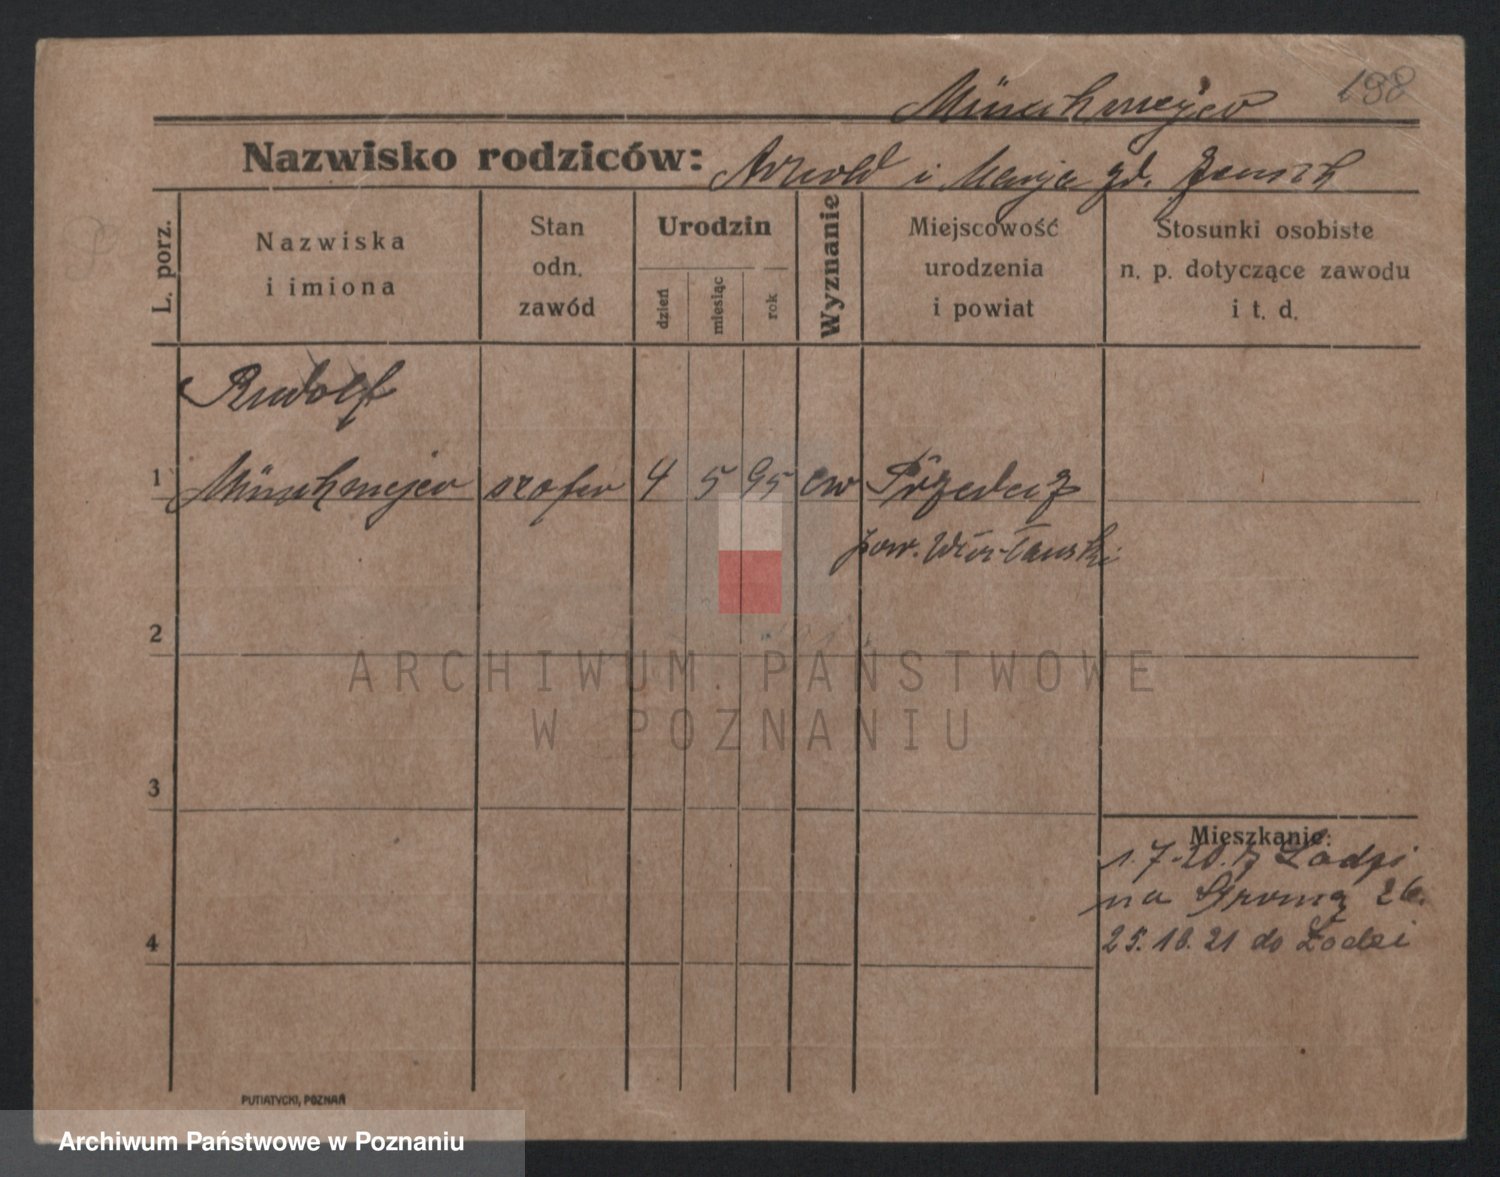 198
Münchmejer
Nazwisko rodziców: Arnold i Marja zd. Jensch
L. porz.
Nazwiska
i imiona
Stan
odn.
zawód
Urodzin
dzień
miesiąc
rok
Wyznanie
Miejscowość
urodzenia
i powiat
Stosunki osobiste
n. p. dotyczące zawodu
i t. d.
Rudolf
1 Münchmejer szofer 4 5 95 ew Przedecz
pow. Włocławski
2
3
4
Mieszkanie:
1.7.20. z Łodzi
na 26.
25.10.21 do Łodzi
PUTIATYCKI, POZNAŃ
ARCHIWUM PAŃSTWOWE
W POZNANIU
Archiwum Państwowe w Poznaniu